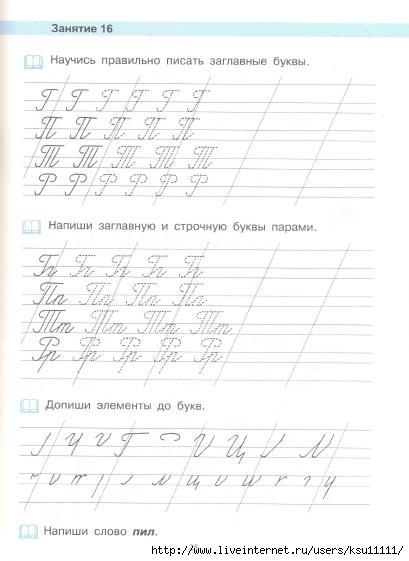 Занятие 16
Научись правильно писать заглавные буквы.
Г Г Г Г Г Г
П П П П П
Т Т Т Т Т
Р Р Р Р Р Р
Напиши заглавную и строчную буквы парами.
Пп Пп Пп Пп
Тт Тт Тт Тт
Рр Рр Рр Рр Рр
Допиши элементы до букв.
Напиши слово пил.
http://www.liveinternet.ru/users/ksu11111/